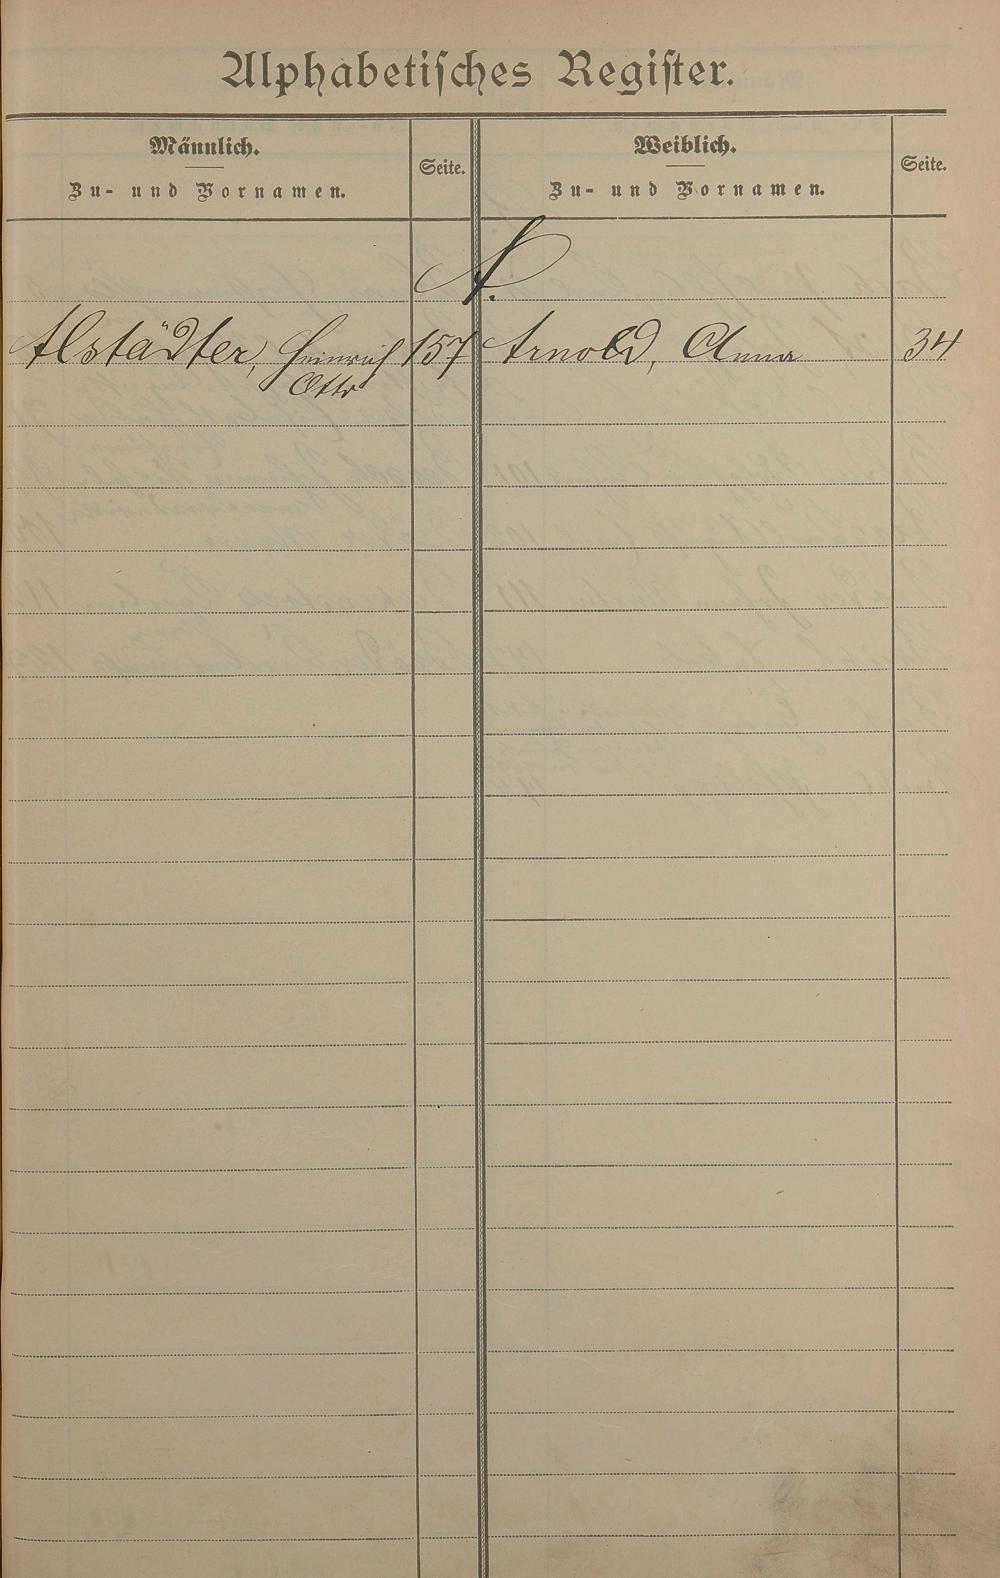 Alphabetisches Register.
Männlich.
Zu- und Vornamen.
Seite.
Weiblich.
Zu- und Vornamen.
Seite.
A.
Alstädter, Heinrich 157
Otto
Arnold, Anna 34